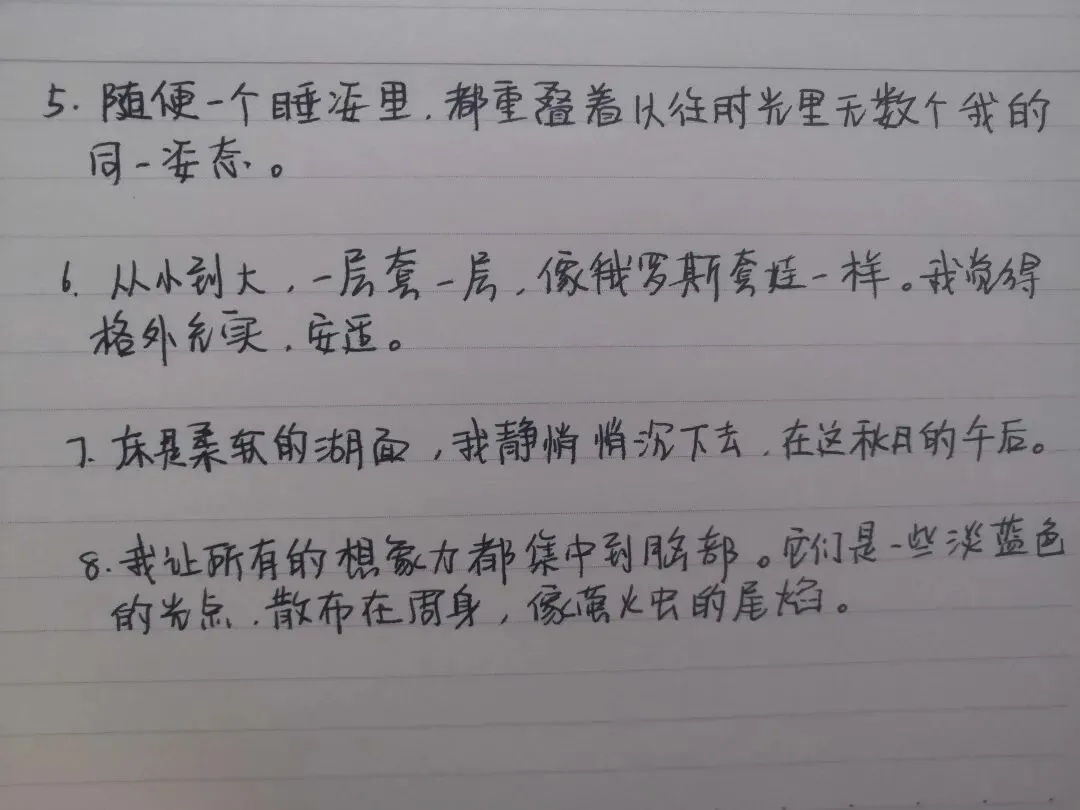 5. 随便一个睡姿里,都重叠着以往时光里无数个我的
同一姿态。
6. 从小到大,一层套一层,像俄罗斯套娃一样。我觉得
格外充实,安适。
7. 床是柔软的湖面,我静悄悄沉下去,在这秋月的午后。
8. 我让所有的想象力都集中到胸部。它们是一些淡蓝色
的光点,散布在周身,像萤火虫的尾焰。